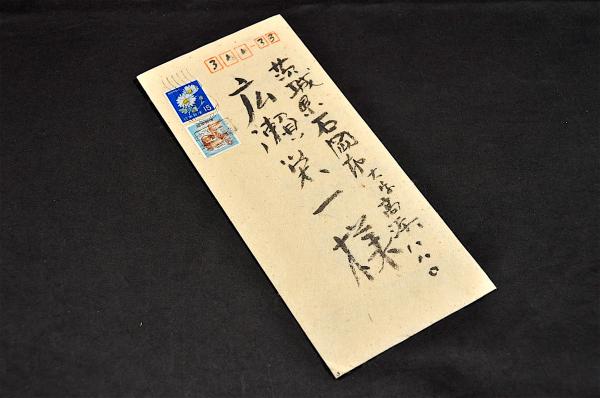 茨城県石岡市大字高浜八八〇
広瀬栄一様
15